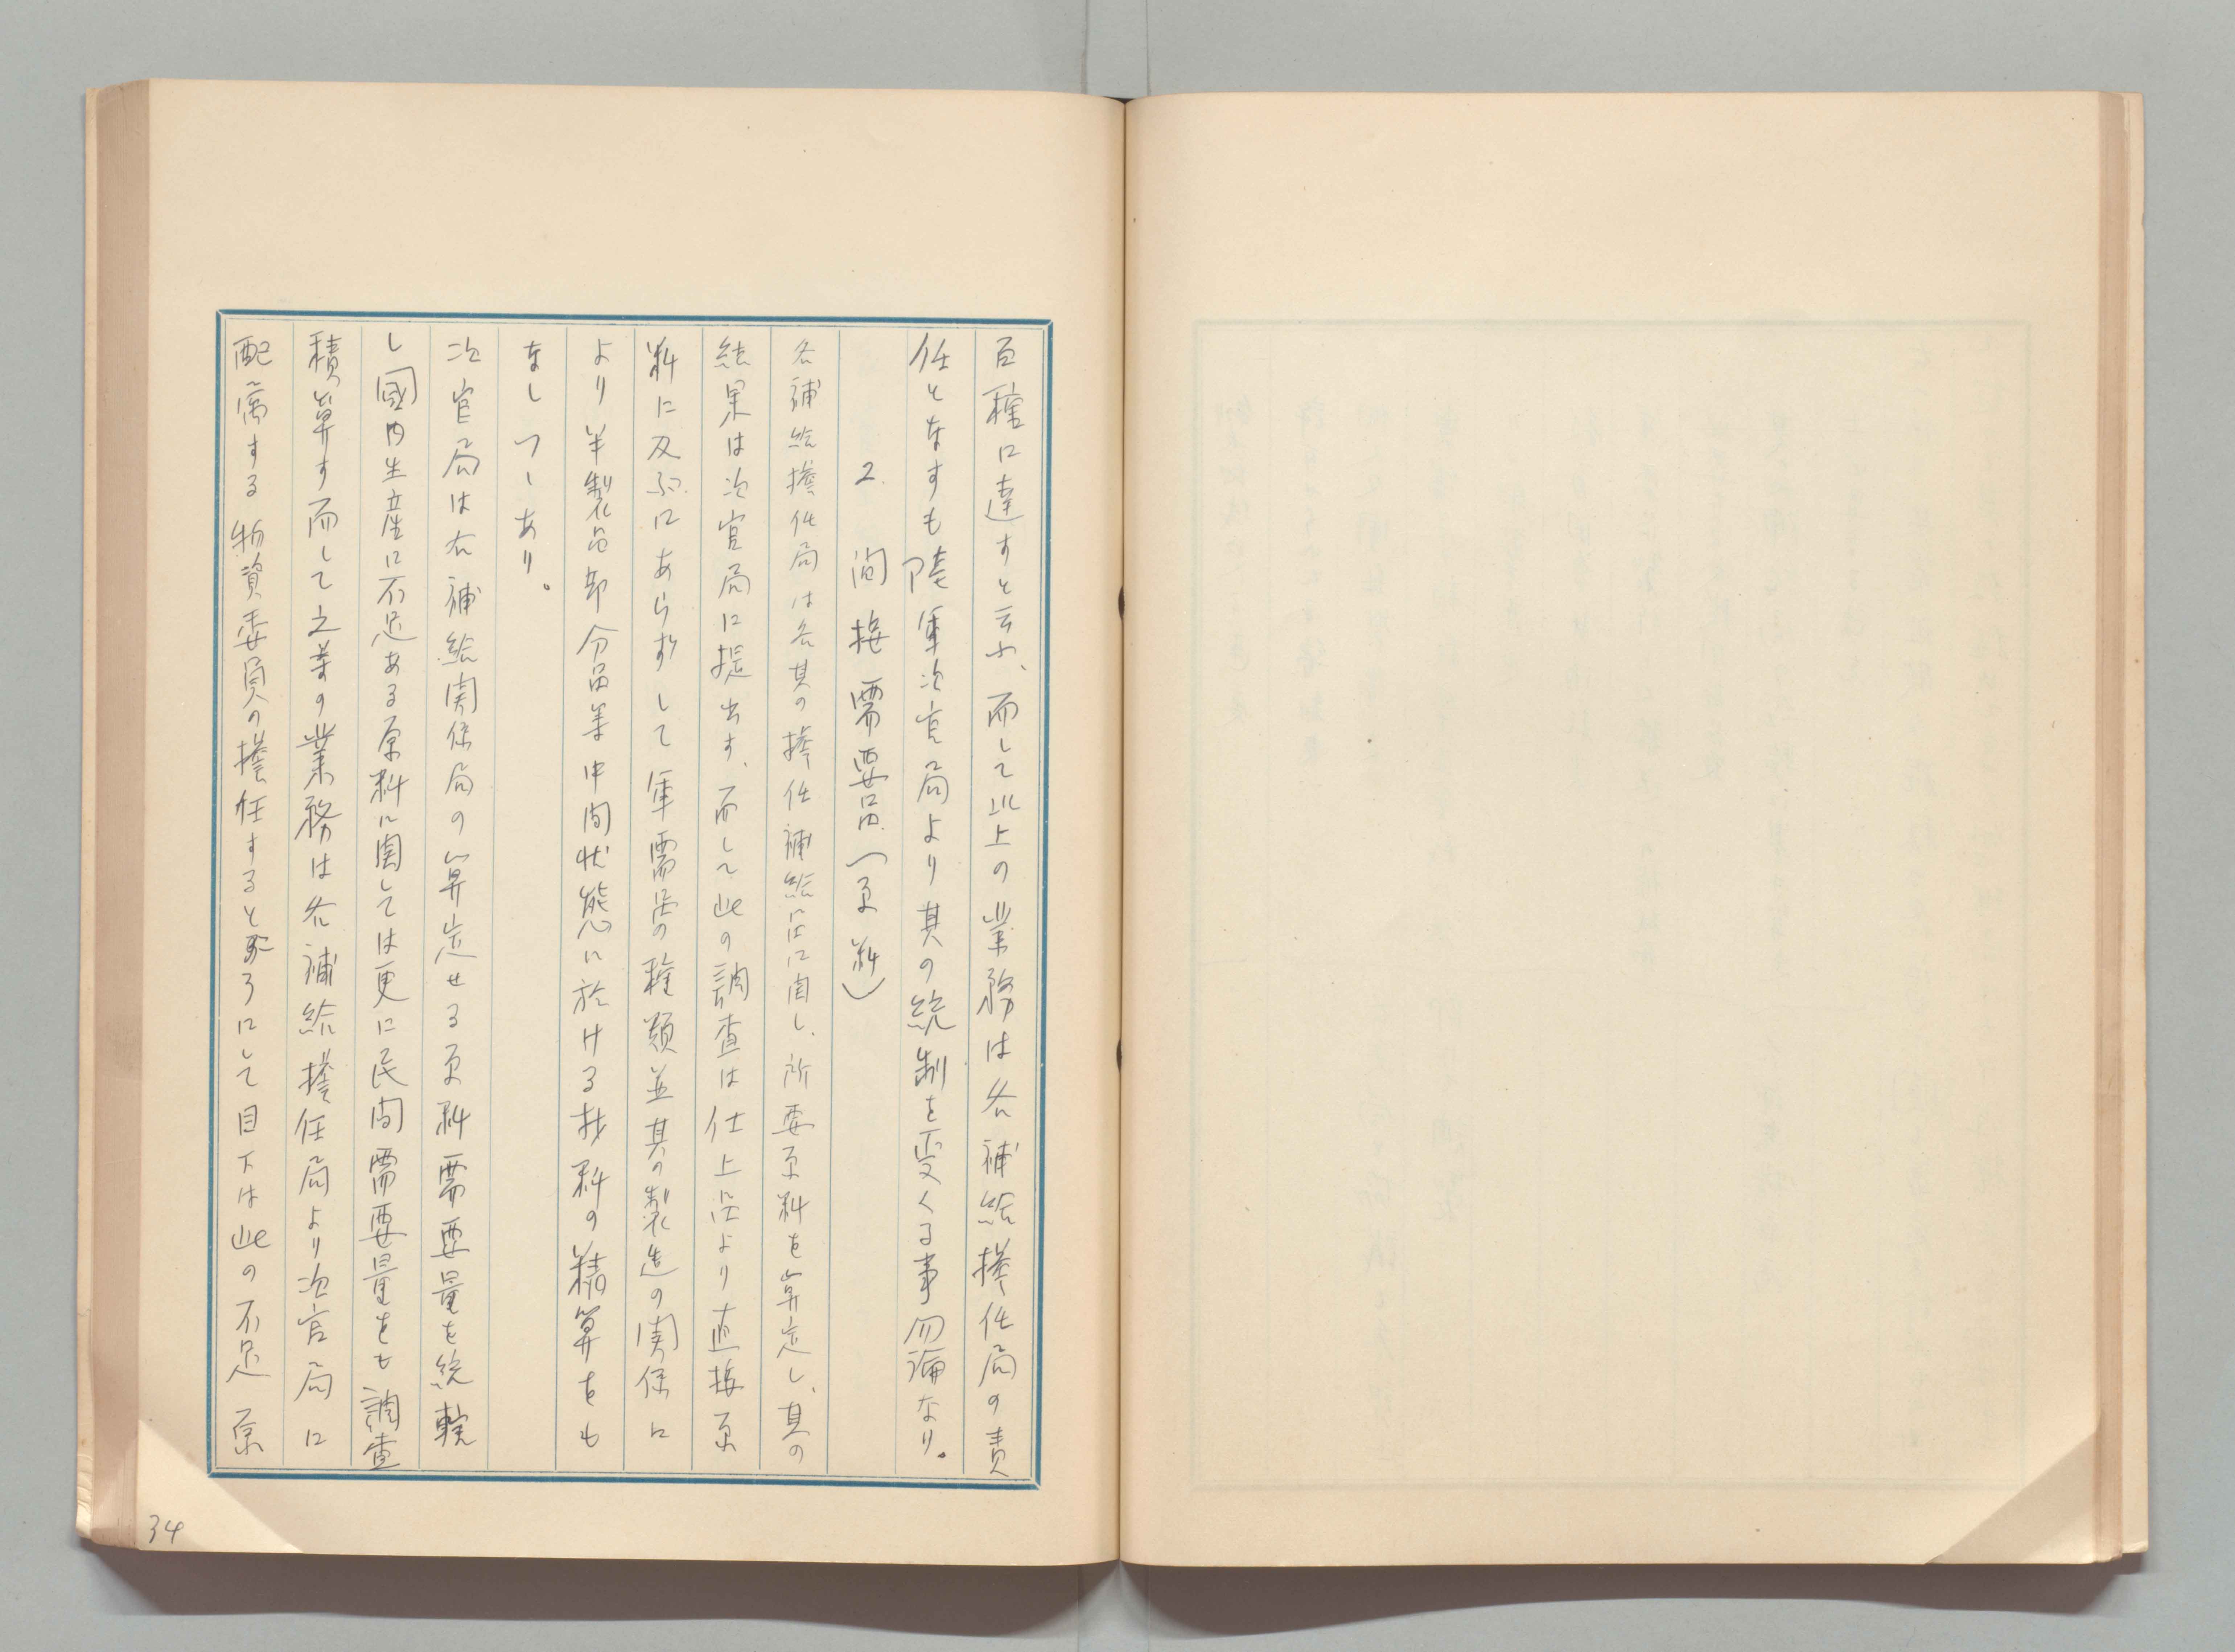 百種に達すと云ふ、而して此上の業務は各補給擔任局の責
任となすも陸軍次官局より其の統制を受くる事勿論なり。
2. 間接需要品(原料)
各補給擔任局は各其の擔任補給品に関し、所要原料を算定し、其の
結果は次官局に提出す、而して此の調査は仕上品より直接原
料に及ぶにあらずして軍需品の種類並其の製造の関係に
より半製品部分品等中間状態に於ける材料の精算をも
なしつゝあり。
次官局は右補給関係局の算定せる原料需要量を統轄
し國内生産に不足ある原料に関しては更に民間需要量をも調査
積算す而して之等の業務は各補給擔任局より次官局に
配属する物資委員の擔任するところにして目下は此の不足原
34